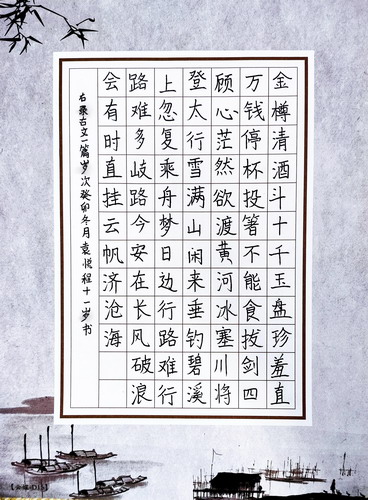 金樽清酒斗十千玉盘珍羞直
万钱停杯投箸不能食拔剑四
顾心茫然欲渡黄河冰塞川将
登太行雪满山闲来垂钓碧溪
上忽复乘舟梦日边行路难行
路难多岐路今安在长风破浪
会有时直挂云帆济沧海
右录古文一篇岁次癸卯年月袁悦程十一岁书